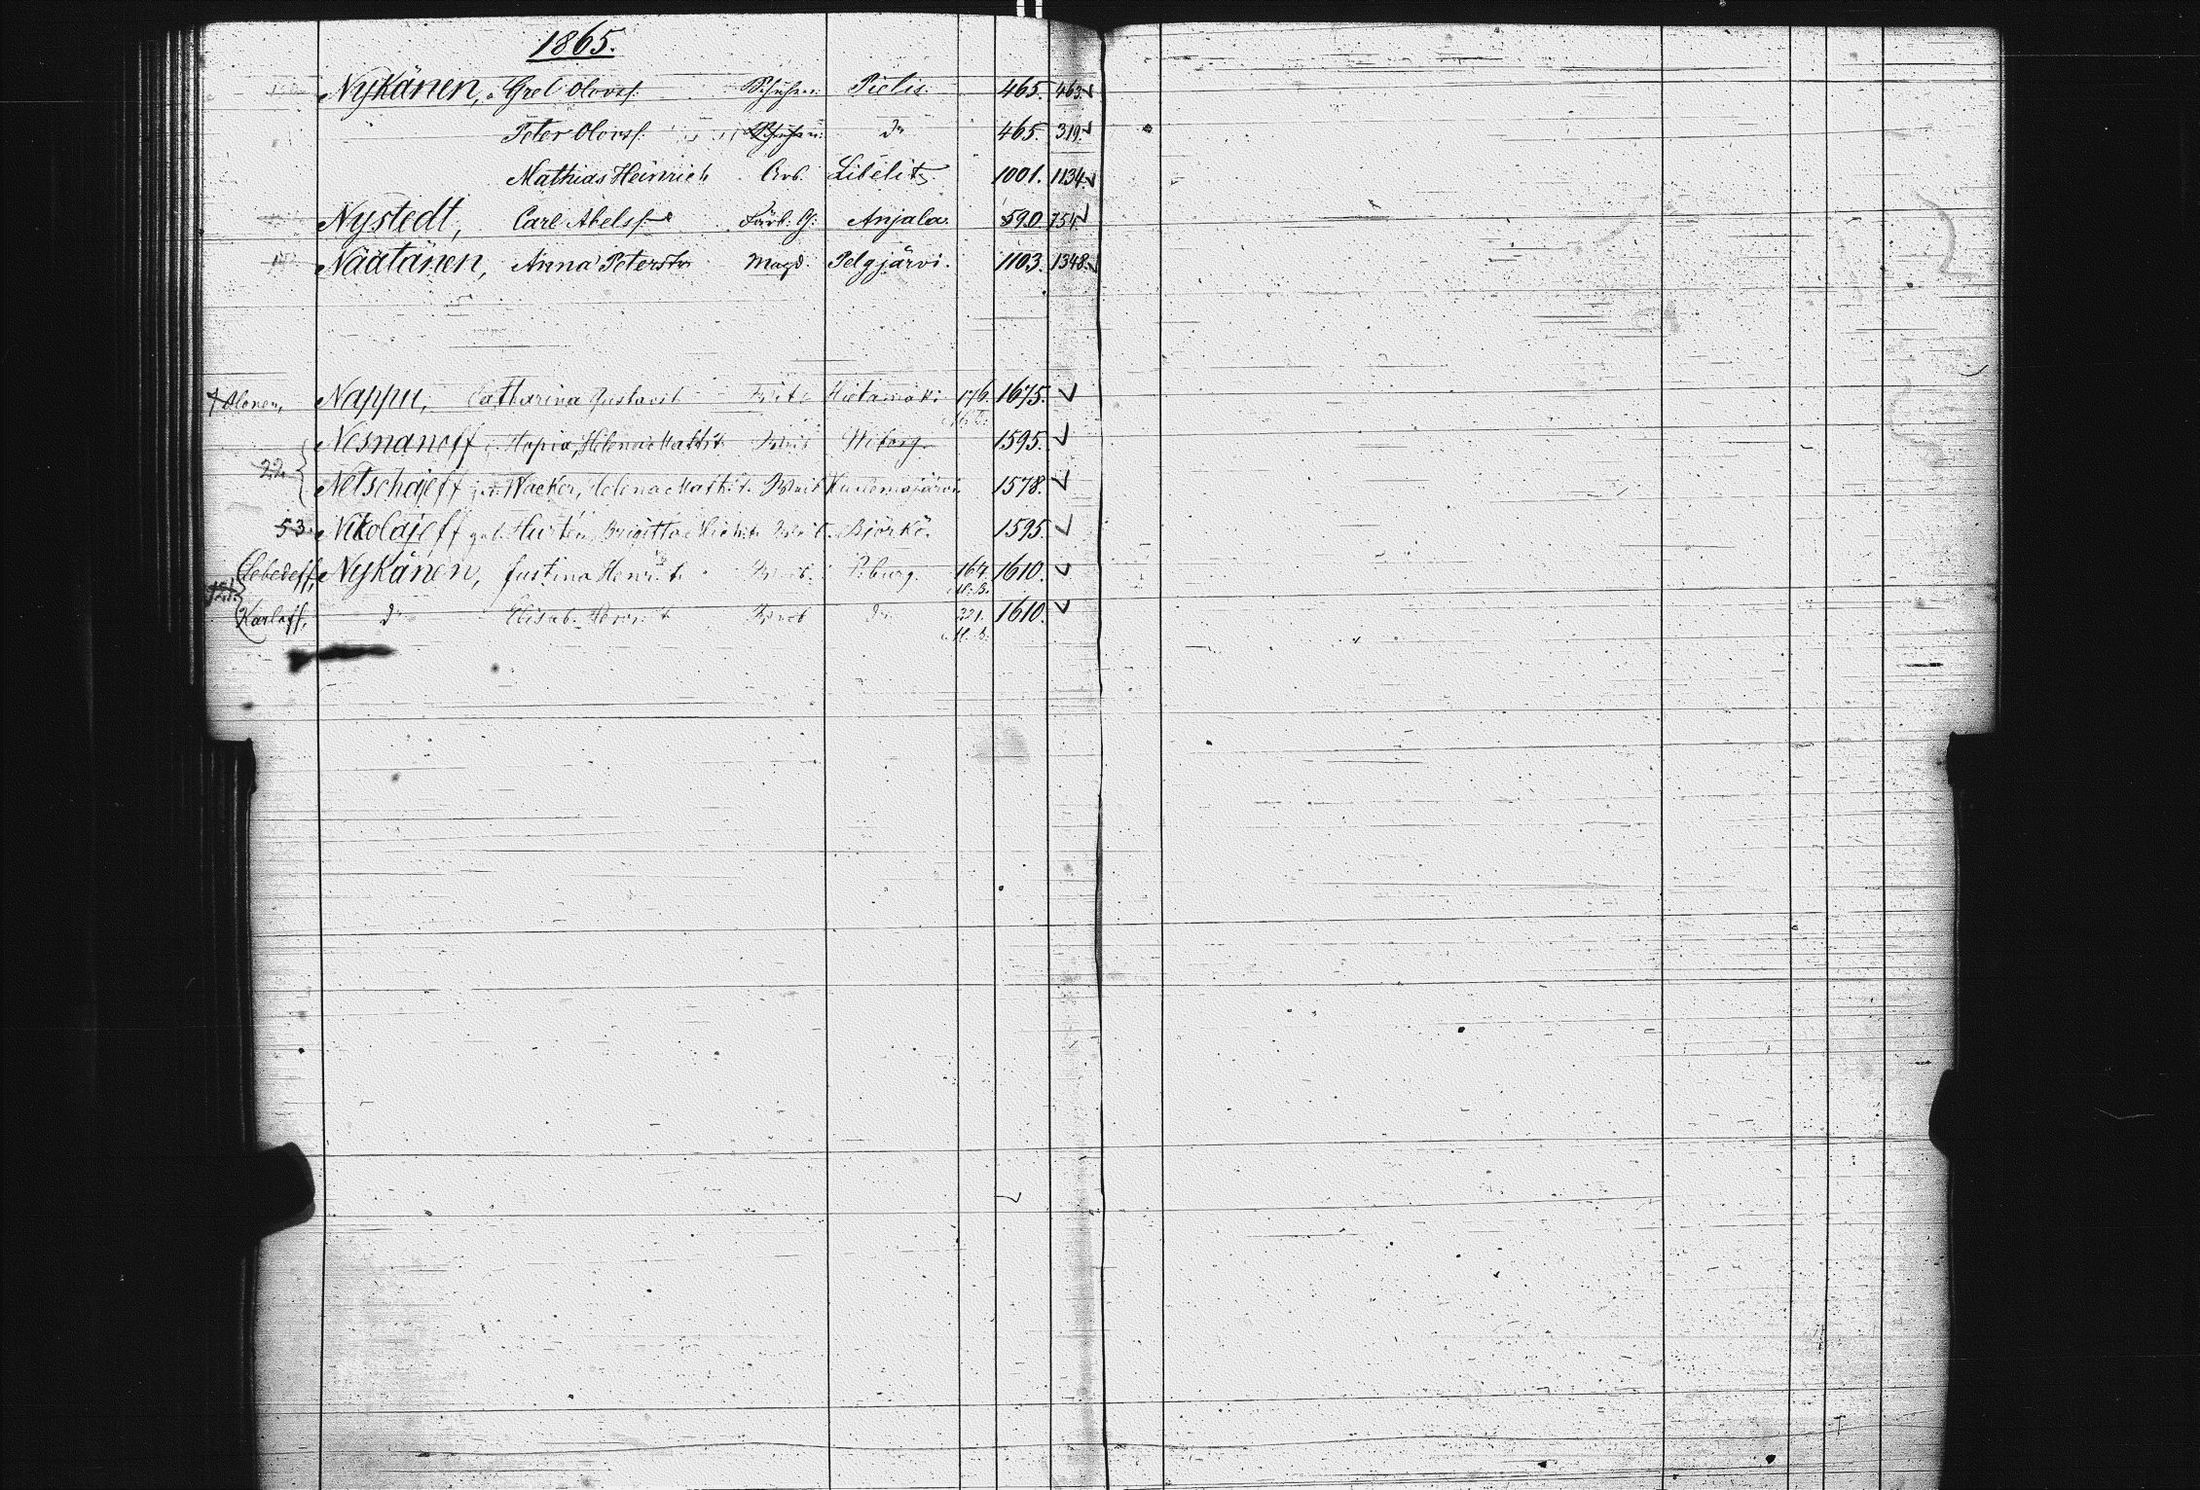 1865.
Nykänen, Grel Olovsf. Pielis. 465. 463
Peter Olovsf. do 465. 319.
Mathias Heinrich Arb. Libelits. 1001. 1134.
Nystedt, Carl Abelsf. Anjala. 590. 751.
Näätänen, Anna Peterstr Magd. Pelgjärvi. 1103. 1348.
Olonen, Nappu, Catharina Gustavst Hietamäki 176. 1675.
Nesnanoff Hopia, Helena Mattst. Wiborg 1595.
22. Netschajeff Wacker, Helena Math.t. 1578.
53. Nikolajeff Brigitta Björkö. 1595.
Lebedeff, Nykänen, Justina Henr.t. P.burg. 164. 1610.
M. B.
Karloff, do Elisab. Henr.t do 221. 1610.
M. B.